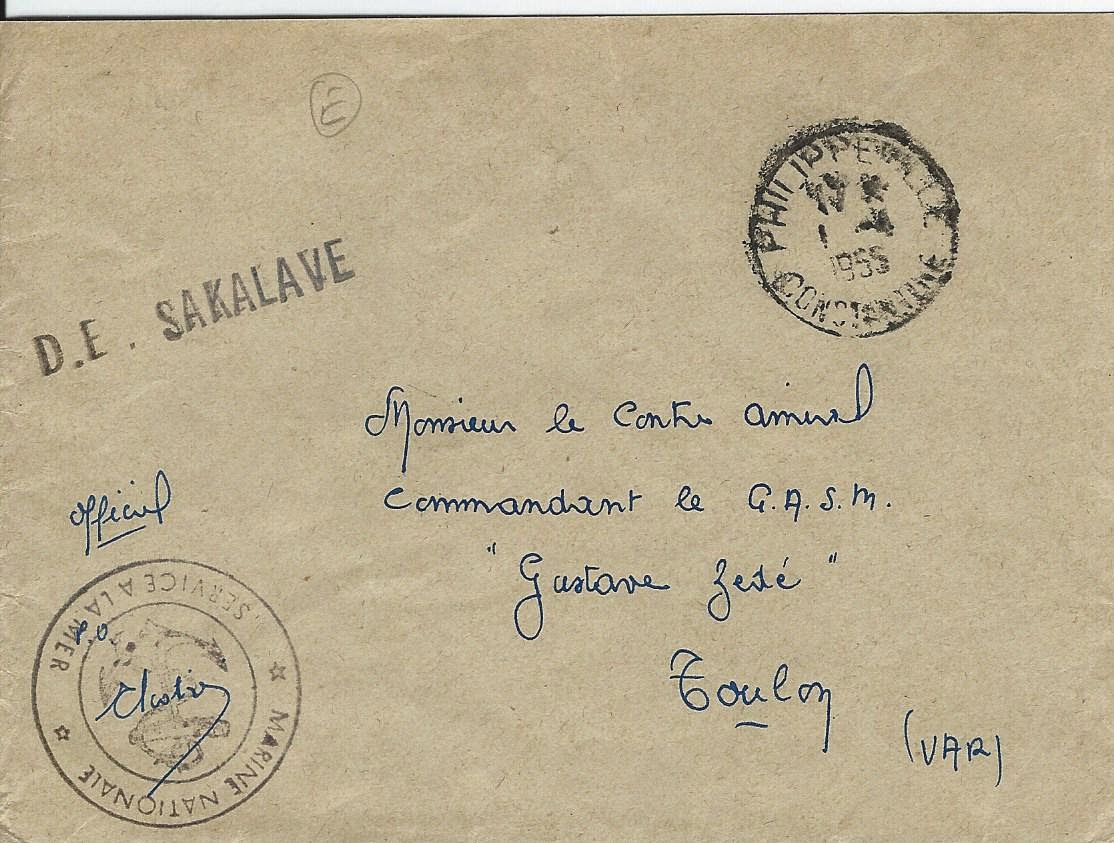 E
PHILIPPEVILLE
1955
CONSTANTINE
D.E. SAKALAVE
Monsieur le Contre amiral
Commandant le G.A.S.M.
"Gustave Zédé"
Toulon
(VAR)
Officiel
SERVICE A LA MER
MARINE NATIONALE
P.O